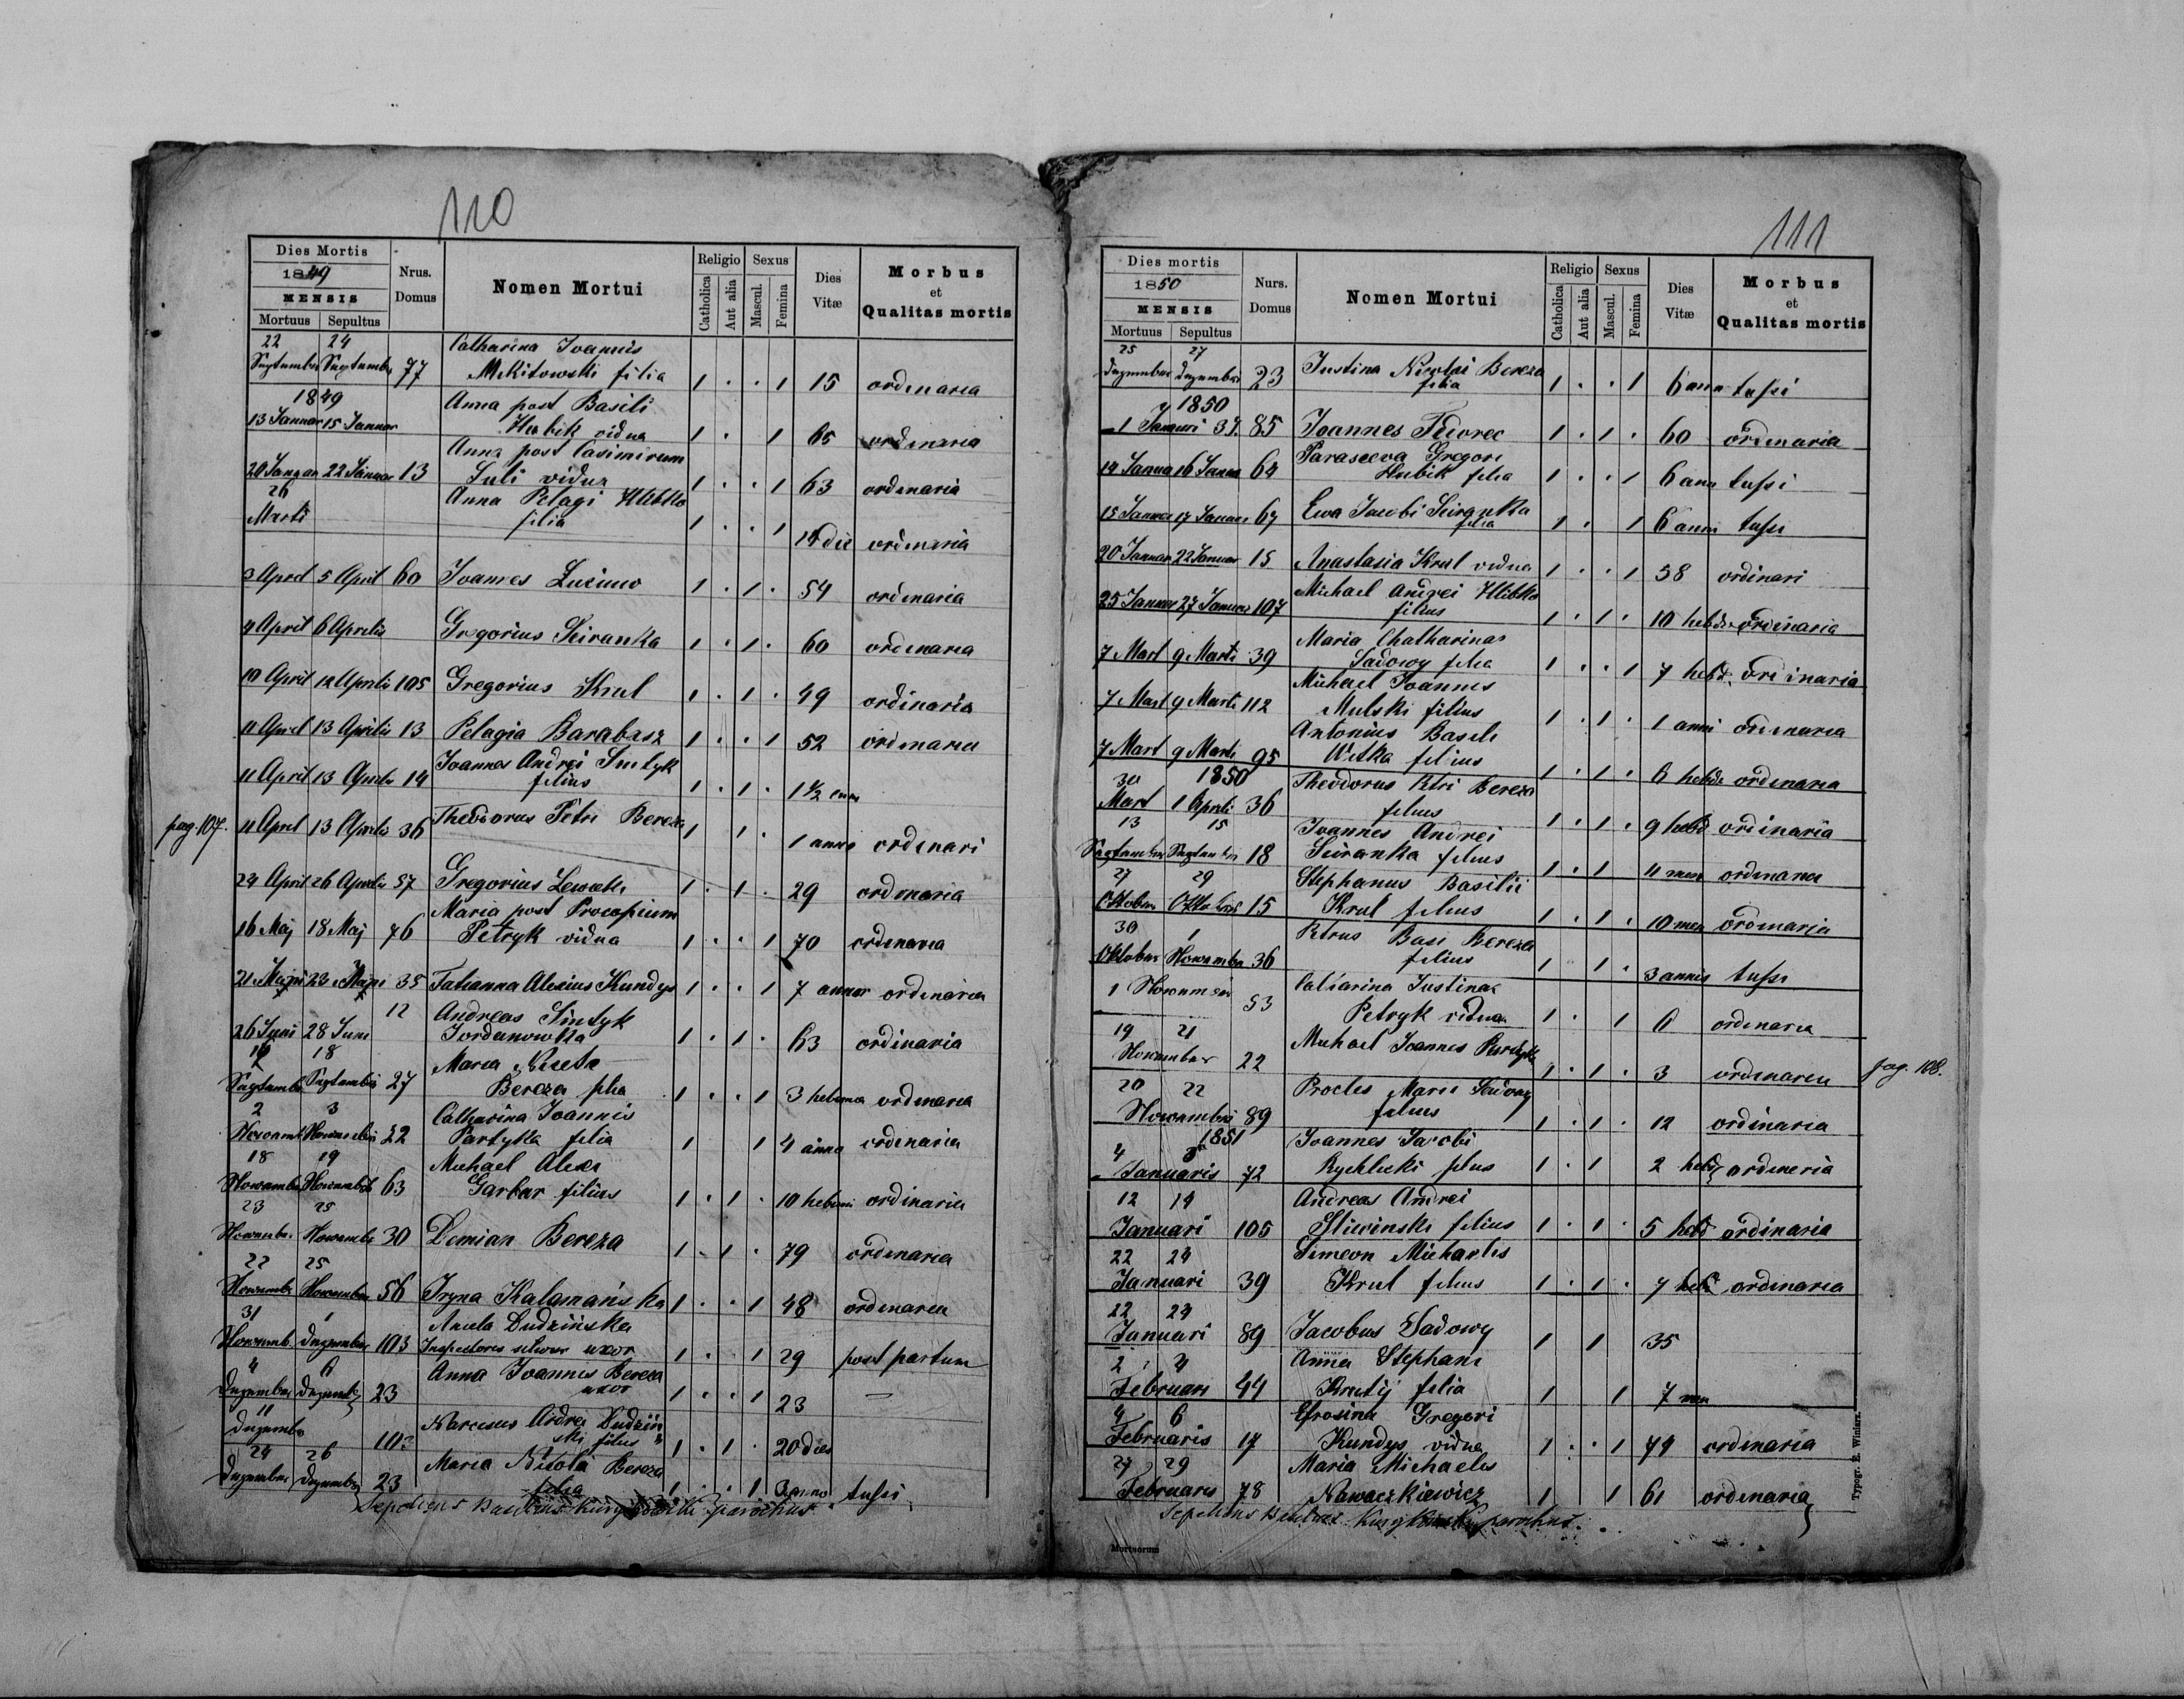 110
Dies Mortis
1849
MENSIS
Mortuus Sepultus
Nrus. Domus
Nomen Mortui
Religio
Catholica
Aut alia
Sexus
Mascul.
Femina
Dies Vitæ
Morbus
et
Qualitas mortis
22 24 Catharina Joannis
77 Mikitowski filia 1 . . 1 15 ordinaria
1849 Anna post Basili
13 Januar 15 Januar Hubik vidua 1 . 1 65 ordinaria
Anna post Casimirum
20 Januar 22 Januar 13 Suli vidua 1 . . 1 63 ordinaria
26 Anna Pelagi Hlibko
Marti filia 1 . . 1 14 die ordinaria
3 April 5 April 60 Joannes 1 . 1 . 54 ordinaria
4 April 6 Aprilis Gregorius Sciranka 1 . 1 . 60 ordinaria
10 April 12 Aprilis 105 Gregorius Krul 1 . 1 . 49 ordinaria
11 April 13 Aprilis 13 Pelagia Barabasz 1 . . 1 52 ordinaria
Joannes Andrei Smtyk
11 April 13 Aprilis 14 filius 1 . 1 . 1 1/2
pag. 107. 11 April 13 Aprilis 36 Theodorus Petri Bereza 1 1 . 1 anno ordinari
24 April 26 Aprilis 57 Gregorius 1 . 1 . 29 ordinaria
Maria post Procopium
16 Maj 18 Maj 76 Petryk vidua 1 . . 1 70 ordinaria
21 Maji 23 Maji 35 Tatianna Alexius Kundys 1 . . 1 7 annor ordinaria
12 Andreas
26 Juni 28 Juni Jordanowka 1 . 1 . 63 ordinaria
16 18 Maria
27 Bereza filia 1 . . 1 3 ordinaria
2 3 Catharina Joannis
22 Partyka filia 1 1 4 anno ordinaria
18 19 Michael Alexi
63 Garbar filius 1 . 1 . 10 ordinaria
23 25
30 Demian Bereza 1 . 1 . 79 ordinaria
22 25
56 Iryna Kalamańska 1 . . 1 48 ordinaria
31 1 Aniela Dudzińska
103 Inspectoris uxor 1 . . 1 29 post partum
4 6 Anna Joannis Bereza
23 uxor 1 . . 1 23 —
11 Narcisus Andrei Dudziń
103 ski filius 1 . 1 . 20 dies
24 26 Maria Nikolai Bereza
23 filia 1 . . 1 3 anno tussi
Sepeliens Basilius parochus
111
Dies mortis
1850
MENSIS
Mortuus Sepultus
Nurs. Domus
Nomen Mortui
Religio
Catholica
Aut alia
Sexus
Mascul.
Femina
Dies Vitæ
Morbus
et
Qualitas mortis
25 27 Justina Nicolai Bereza
23 filia 1 . . 1 6 ann tussi
1850
1 Januari 3 J. 85 Joannes Fedorec 1 . 1 . 60 ordinaria
Parasceva Gregori
14 Janua 16 Janua 64 Hubik filia 1 . . 1 6 ann tussi
15 Januar 17 Januar 67 Ewa Jacobi Sciranka filia 1 . 1 6 anni tussi
20 Januar 22 Januar 15 Anastasia Krul vidua 1 . . 1 58 ordinari
Michael Andrei Hlibko
25 Januar 27 Januar 107 filius 1 . 1 . 10 hebd. ordinaria
Maria Chatharinae
7 Mart 9 Marti 39 Sadowy filia 1 . . 1 7 hebd. ordinaria
Michael Joannis
7 Mart 9 Marti 112 Mulski filius 1 . 1 . 1 anni ordinaria
Antonius Basili
7 Mart 9 Marti 95 Witka filius 1 . 1 . 6 hebde ordinaria
30 1850 Theodorus Petri Bereza
Mart 1 Aprili 36 filius 1 . 1 . 9 hebd ordinaria
13 15 Joannes Andrei
18 Sciranka filius 1 . 1 11 mens ordinaria
27 29 Stephanus Basilii
15 Krul filius 1 . 1 . 10 men ordinaria
30 1 Petrus Basi Bereza
36 filius 1 1 . 3 annis tussi
1 Catharina Justinae
53 Petryk vidua 1 . 1 6 ordinaria
19 21 Michael Joannis
22 1 . 1 . 3 ordinaria pag. 108.
20 22 Procles Marii Sadowy
89 filius 1 . 1 . 12 ordinaria
4 1851 Joannes Jacobi
Januaris 72 Rychlicki filius 1 . 1 2 hebd ordineria
12 14 Andreas Andrei
Januari 105 Sliwinski filius 1 . 1 . 5 hebd ordinaria
22 24 Simeon Michaelis
Januari 39 Krul filius 1 . 1 . 7 hebd ordinaria
22 24
Januari 89 Jacobus Sadowy 1 1 35
2 4 Anna Stephani
Februari 44 Krutij filia 1 1 7 men
4 6 Efrosina Gregori
Februaris 17 Kundys vidua 1 . . 1 79 ordinaria
27 29 Maria Michaelis
Februaris 78 Nawaczkiewicz 1 1 61 ordinaria
Sepeliens parochus.
Mortuorum
Typogr. E. Winiarz.